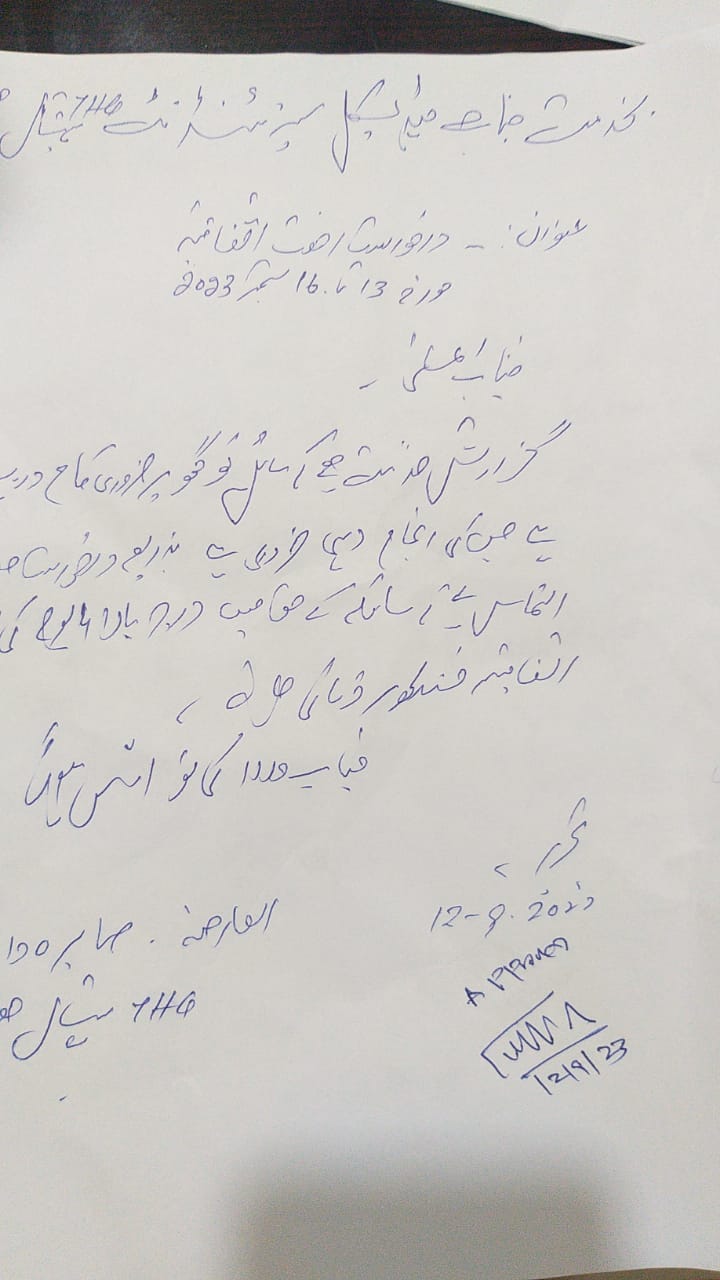 بخدمت جناب میڈیکل سپرنٹنڈنٹ THQ ہسپتال
عنوان :۔ درخواست رخصت اتفاقیہ
مورخہ 13 تا 16 ستمبر 2023
جناب اعلیٰ ۔
گزارش خدمت ہے کہ سائل کو گھر پر ضروری کام
ہے جس کی انجام دہی ضروری ہے بذریعہ درخواست
التماس ہے کہ سائلہ کے حق میں درج بالا ایام کی
اتفاقیہ منظور فرمائی جائے ،
جناب والا کی نوازش ہوگی
تحریر ،
12-9-2023
العارضہ . صابرہ
THQ ہسپتال
Approved
12/9/23